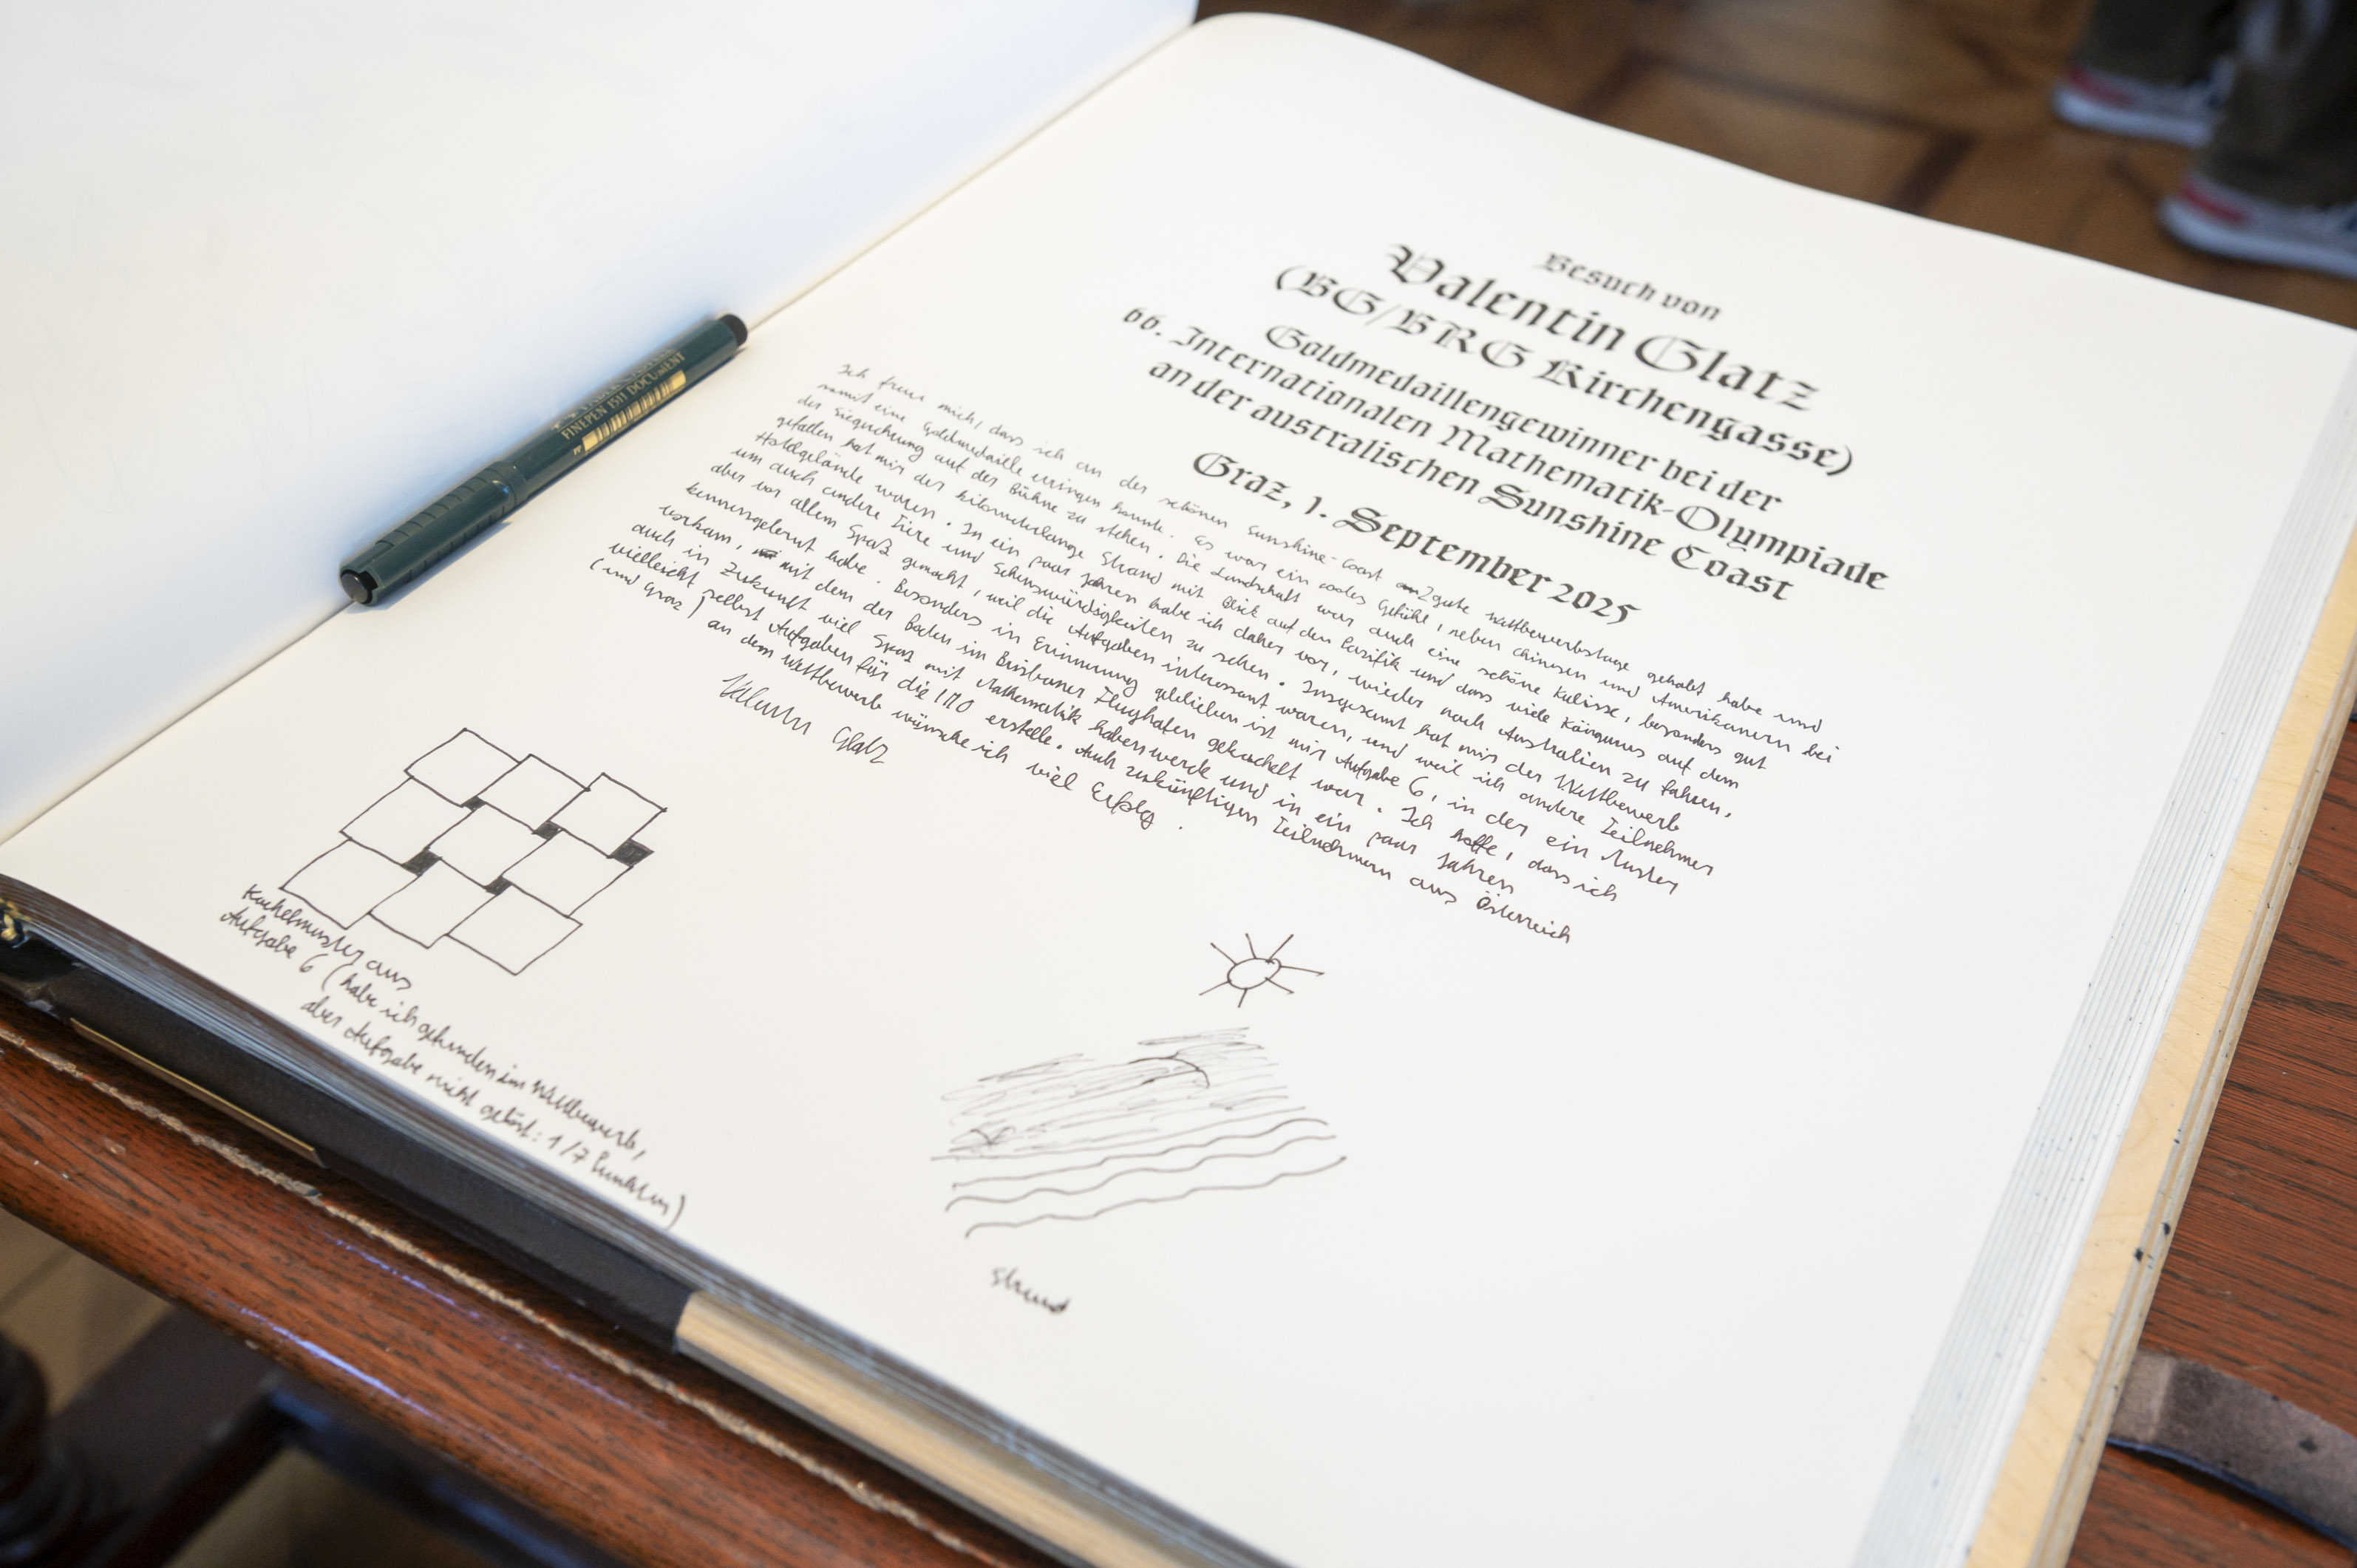 Besuch von
Valentin Glatz
(BG/BRG Kirchengasse)
Goldmedaillengewinner bei der
66. Internationalen Mathematik-Olympiade
an der australischen Sunshine Coast
Graz, 1. September 2025
Ich freue mich, dass ich an der schönen Sunshine-Coast 2 gute Wettbewerbstage gehabt habe und
somit eine Goldmedaille erringen konnte. Es war ein cooles Gefühl, neben Chinesen und Amerikanern bei
der Siegerehrung auf der Bühne zu stehen. Die Landschaft war auch eine schöne Kulisse, besonders gut
gefallen hat mir der kilometerlange Strand mit Blick auf den Pazifik und dass viele Kängurus auf dem
Hotelgelände waren. In ein paar Jahren habe ich daher vor, wieder nach Australien zu fahren,
um auch andere Tiere und Sehenswürdigkeiten zu sehen. Insgesamt hat mir der Wettbewerb
aber vor allem Spaß gemacht, weil die Aufgaben interessant waren, und weil ich andere Teilnehmer
kennengelernt habe. Besonders in Erinnerung geblieben ist mir Aufgabe 6, in der ein Muster
vorkam, mit dem der Boden im Brisbaner Flughafen gekachelt war. Ich hoffe, dass ich
auch in Zukunft viel Spaß mit Mathematik haben werde und in ein paar Jahren
vielleicht selbst Aufgaben für die IMO erstelle. Auch zukünftigen Teilnehmern aus Österreich
(und Graz) an dem Wettbewerb wünsche ich viel Erfolg.
Valentin Glatz
Kachelmuster aus
Aufgabe 6 (habe ich gefunden im Wettbewerb,
aber Aufgabe nicht gelöst: 1/7 Punkten)
Strand
FINEPEN 1511 DOCUMENT